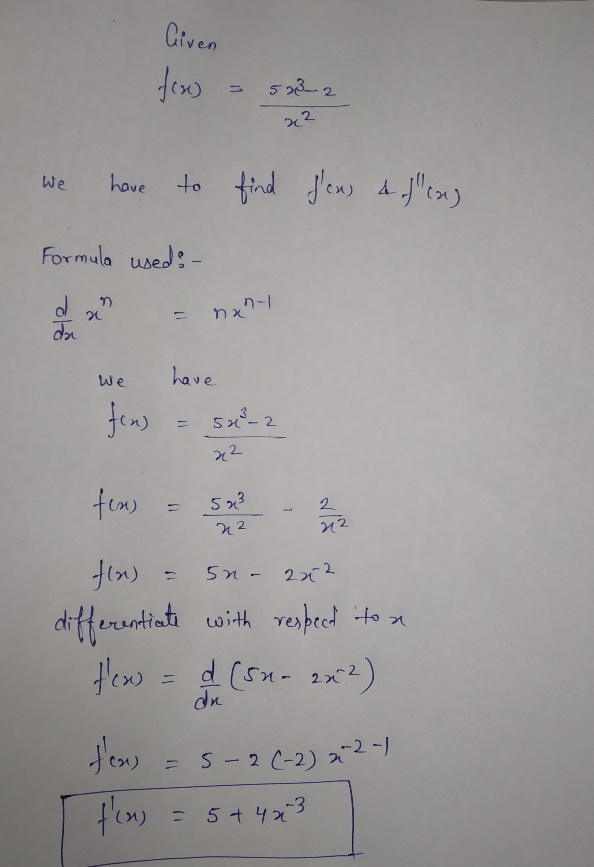 Given
f(x) = 5x³-2 / x²
We have to find f'(x) & f''(x)
Formula used:-
d/dx xⁿ = nxⁿ⁻¹
We have
f(x) = 5x³-2 / x²
f(x) = 5x³/x² - 2/x²
f(x) = 5x - 2x⁻²
differentiate with respect to x
f'(x) = d/dx (5x - 2x⁻²)
f'(x) = 5 - 2(-2) x⁻²⁻¹
f'(x) = 5 + 4x⁻³